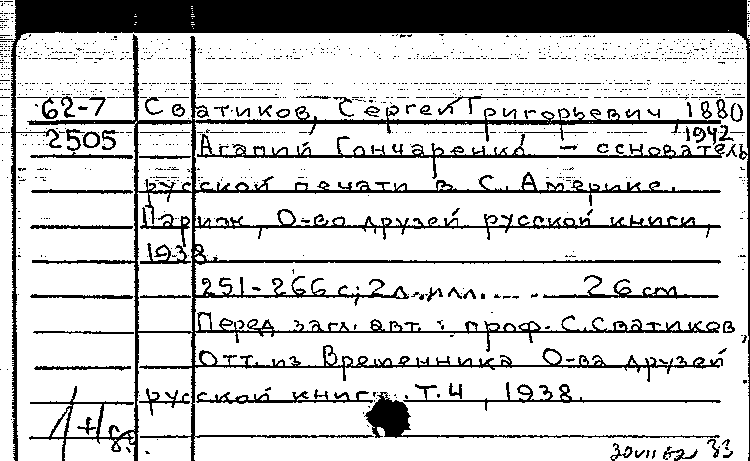 62-7 Сватиков, Сергей Григорьевич, 1880
2505 1942
Агапий Гончаренко – основатель
русской печати в С. Америке.
Париж, О-во друзей русской книги,
1938.
251-266 с; 2 л. илл. 26 cm
Перед загл. авт.: проф. С. Сватиков,
Отт. из Временника О-ва друзей
русской книги. Т. 4, 1938.